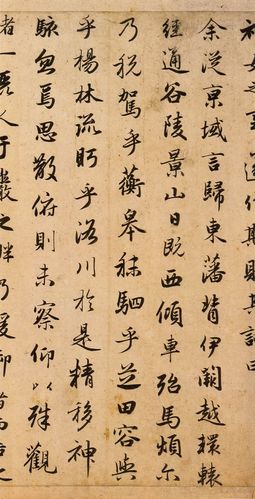 之事遂作斯賦其詞曰
余從京域言歸東藩背伊闕越轘轅
經通谷陵景山日既西傾車殆馬煩爾
乃税駕乎蘅皋秣駟乎芝田容與
乎楊林流眄乎洛川於是精移神
駭忽焉思散俯則未察仰以殊觀
一麗人于巖之畔乃